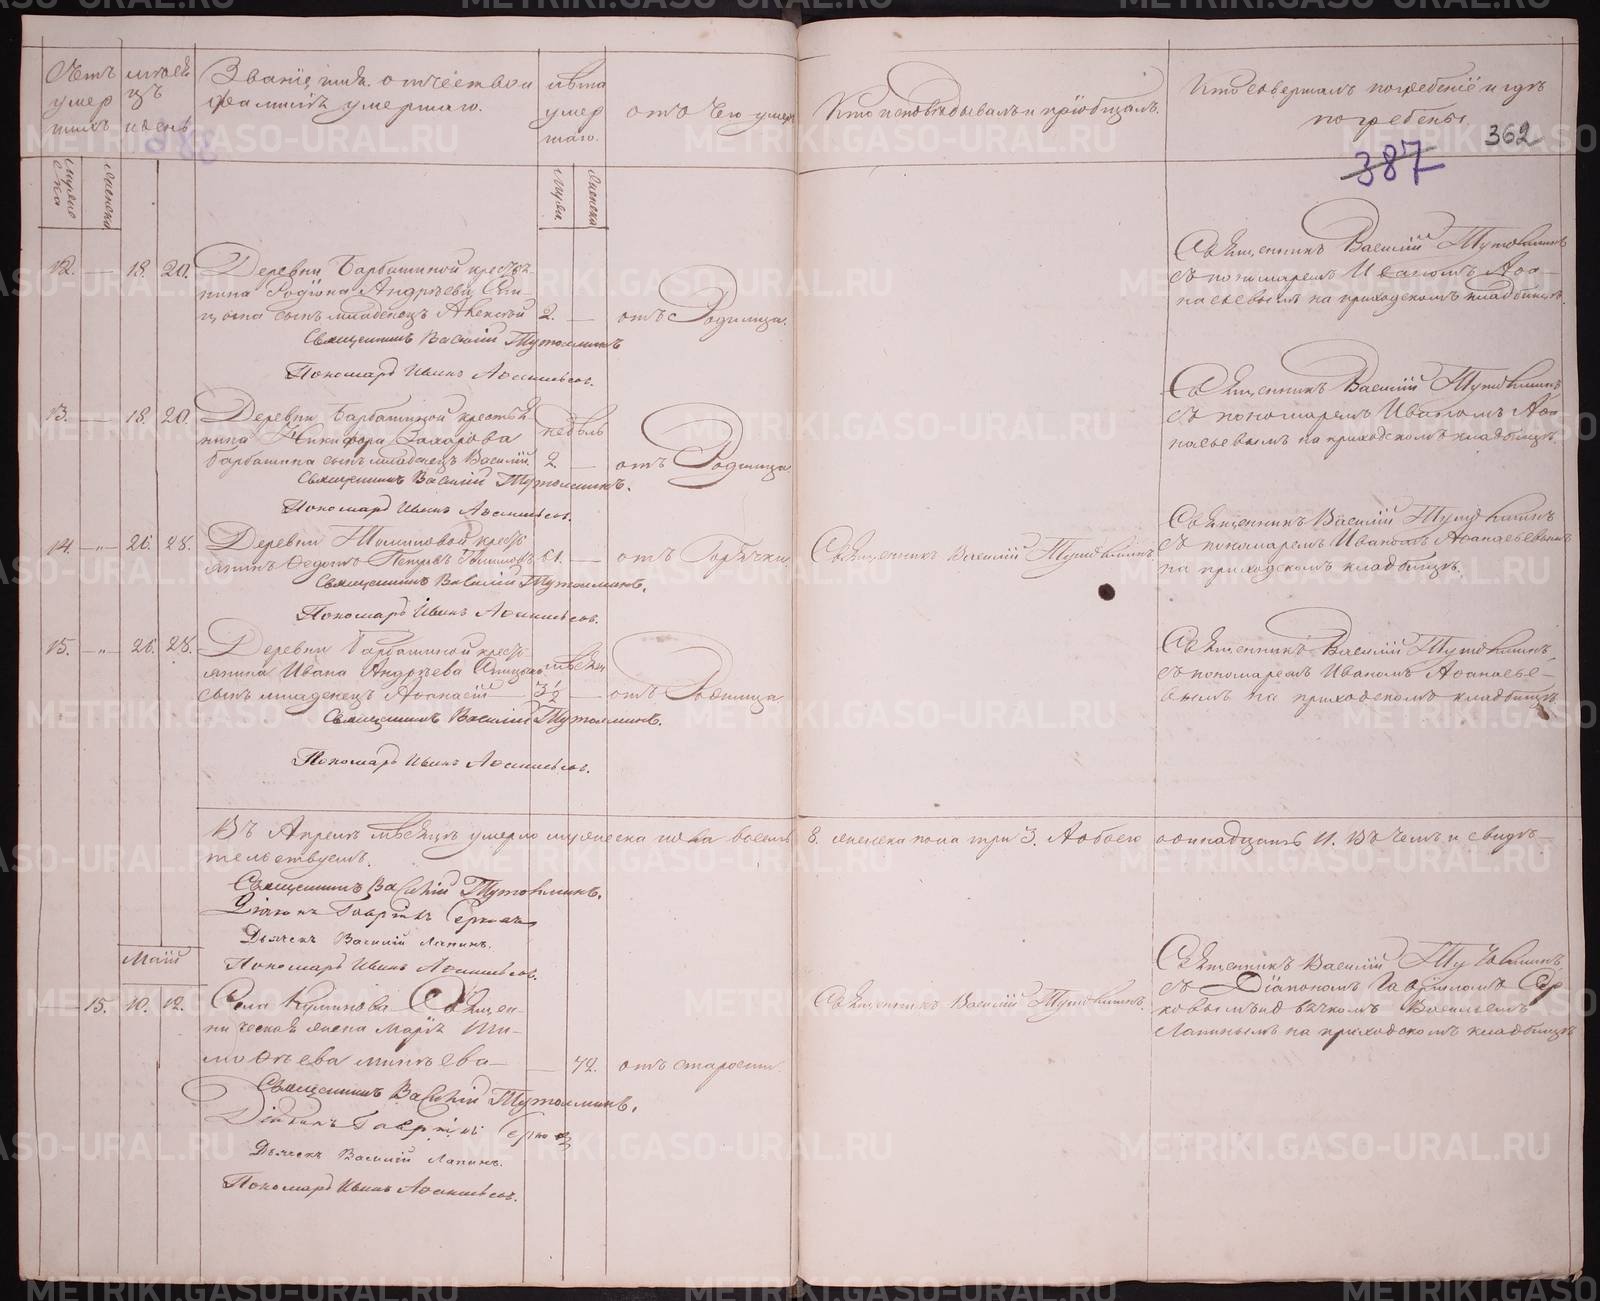 Счетъ умершихъ
мѣсяцъ и день
Званіе, имя, отчество и фамилія умершаго.
лѣта умершаго.
отъ чего умеръ
Кто исповѣдывалъ и пріобщалъ.
Кто совершалъ погребеніе и гдѣ погребены.
362
387
мужеска
женска
мужеска
женска
12. — 18. 20.
Деревни Барбашиной кресть-
янина Родіона Андрѣева
сынъ младенецъ Алексѣй 2. —
отъ Родимца.
Священникъ Василій Тутолминъ
съ пономаремъ Иваномъ Аѳа-
насьевымъ на приходскомъ кладбищѣ.
Священникъ Василій Тутолминъ
Пономарь Иванъ Аѳанасьевъ.
13. — 18. 20.
Деревни Барбашиной крестья
нина Никифора Захарова
Барбашина сынъ младенецъ Василій
недѣль
2 —
отъ Родимца
Священникъ Василій Тутолминъ
съ пономаремъ Иваномъ Аѳа-
насьевымъ на приходскомъ кладбищѣ.
Священникъ Василій Тутолминъ.
Пономарь Иванъ Аѳанасьевъ.
14. — " — 26. 28.
Деревни кресть
янинъ Ѳедотъ Петровъ 61. —
отъ Горячки
Священникъ Василій Тутолминъ
Священникъ Василій Тутолминъ
съ пономаремъ Иваномъ Аѳанасьевымъ
на приходскомъ кладбищѣ.
Священникъ Василій Тутолминъ.
Пономарь Иванъ Аѳанасьевъ.
15. — " — 26. 28.
Деревни Барбашиной кресть
янина Ивана Андрѣева
сынъ младенецъ Аѳанасій —
мѣсяц
3½ —
отъ Родимца
Священникъ Василій Тутолминъ,
съ пономаремъ Иваномъ Аѳанасье-
вымъ на приходскомъ кладбищѣ.
Священникъ Василій Тутолминъ.
Пономарь Иванъ Аѳанасьевъ.
Въ Апрѣлѣ мѣсяцѣ умерло мужеска пола восемь 8. женска пола три 3. А обоего одинадцать 11. Въ чемъ и свидѣ-
тельствуемъ.
Священникъ Василій Тутолминъ.
Діаконъ Гавріилъ Серковъ
Дьячекъ Василій Лапинъ.
Пономарь Иванъ Аѳанасьевъ.
Маій
— 15. 10. 12.
Села Священ-
ническая жена Марія Ти-
моѳѣева —
— 72.
отъ старости.
Священникъ Василій Тутолминъ.
Священникъ Василій Тутолминъ,
съ Діакономъ Гавріиломъ Сер
ковымъ и дьячкомъ Васильемъ
Лапинымъ на приходскомъ кладбищѣ
Священникъ Василій Тутолминъ.
Діаконъ Гавріилъ Серковъ
Дьячекъ Василій Лапинъ.
Пономарь Иванъ Аѳанасьевъ.
METRIKI.GASO-URAL.RU